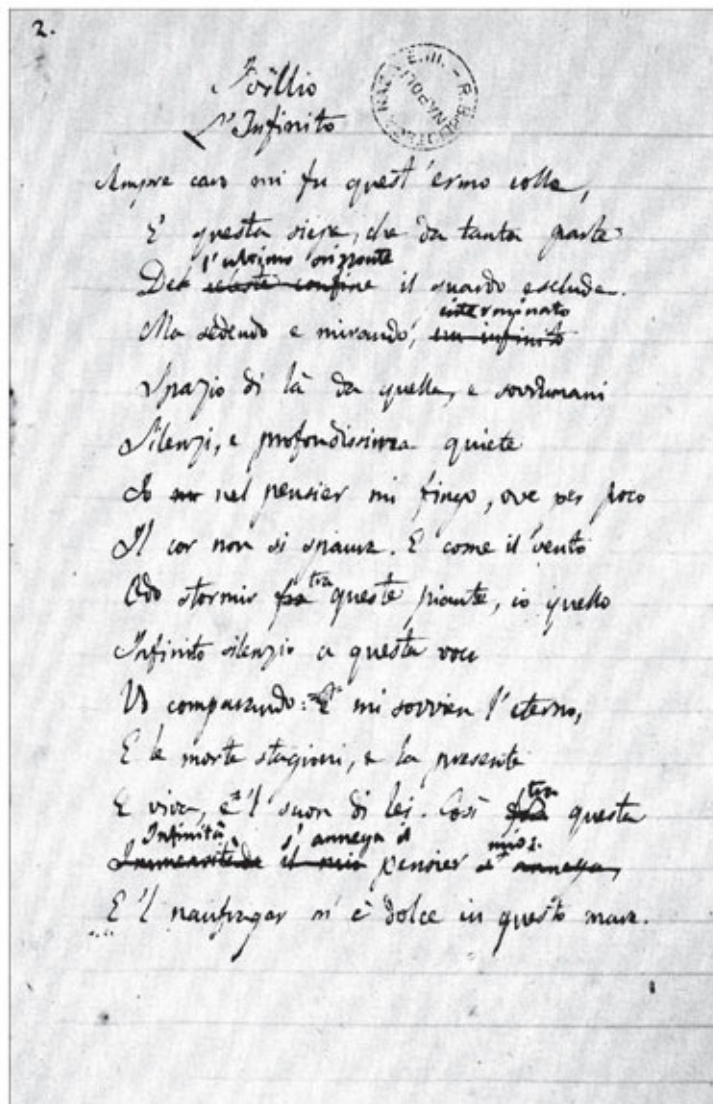 2.
Idillio
L'Infinito
NAPOLI
Sempre caro mi fu quest'ermo colle,
E questa siepe, che da tanta parte
l'ultimo orizzonte
Del celeste confine il guardo esclude.
interminato
Ma sedendo e mirando, un infinito
Spazio di là da quella, e sovrumani
Silenzi, e profondissima quiete
Io nel pensier mi fingo, ove per poco
Il cor non si spaura. E come il vento
tra
Odo stormir fra queste piante, io quello
Infinito silenzio a questa voce
Vo comparando: E mi sovvien l'eterno,
E le morte stagioni, e la presente
tra
E viva, e 'l suon di lei. Così fra questa
Infinità s'annega il mio:
Immensitade il mio pensier s'annega,
E 'l naufragar m'è dolce in questo mare.